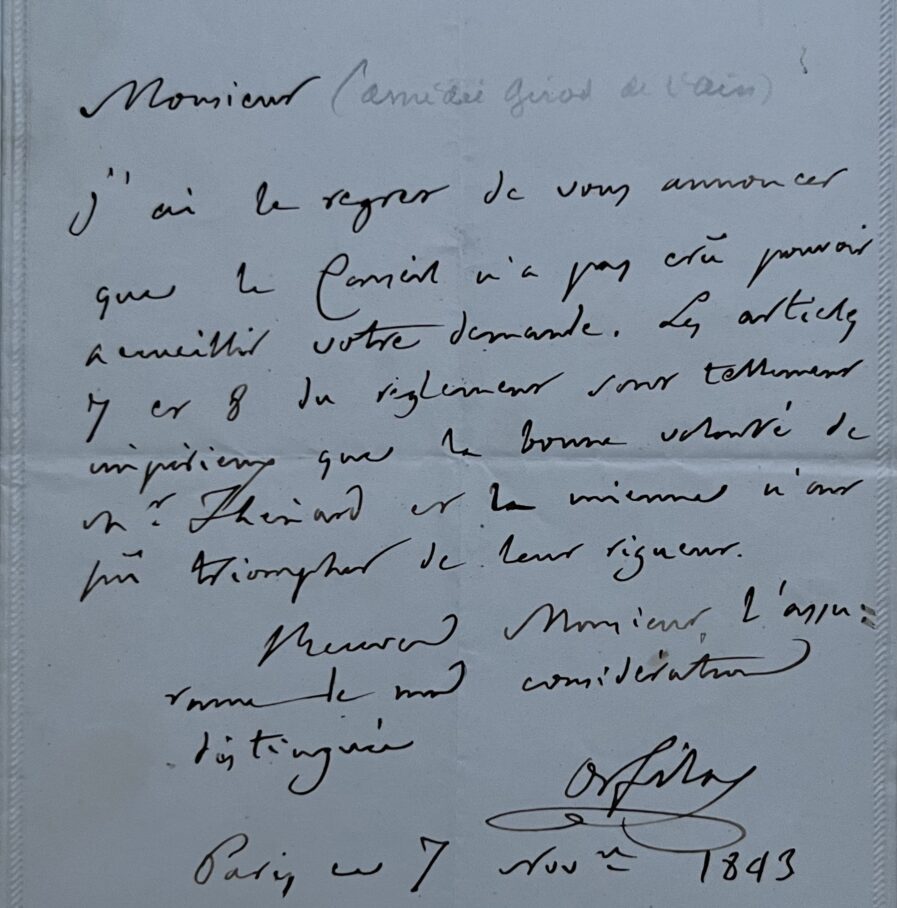 Monsieur (amédée Girod de l'Ain)
J'ai le regret de vous annoncer
que le Conseil n'a pas crû pouvoir
accueillir votre demande. Les articles
7 et 8 du reglement sont tellement
impérieux que la bonne volonté de
Mr. Thénard et la mienne n'ont
pû triompher de leur rigueur.
Recevez Monsieur l'assu=
rance de ma considération
distinguée
Orfila
Paris ce 7 Novre 1843